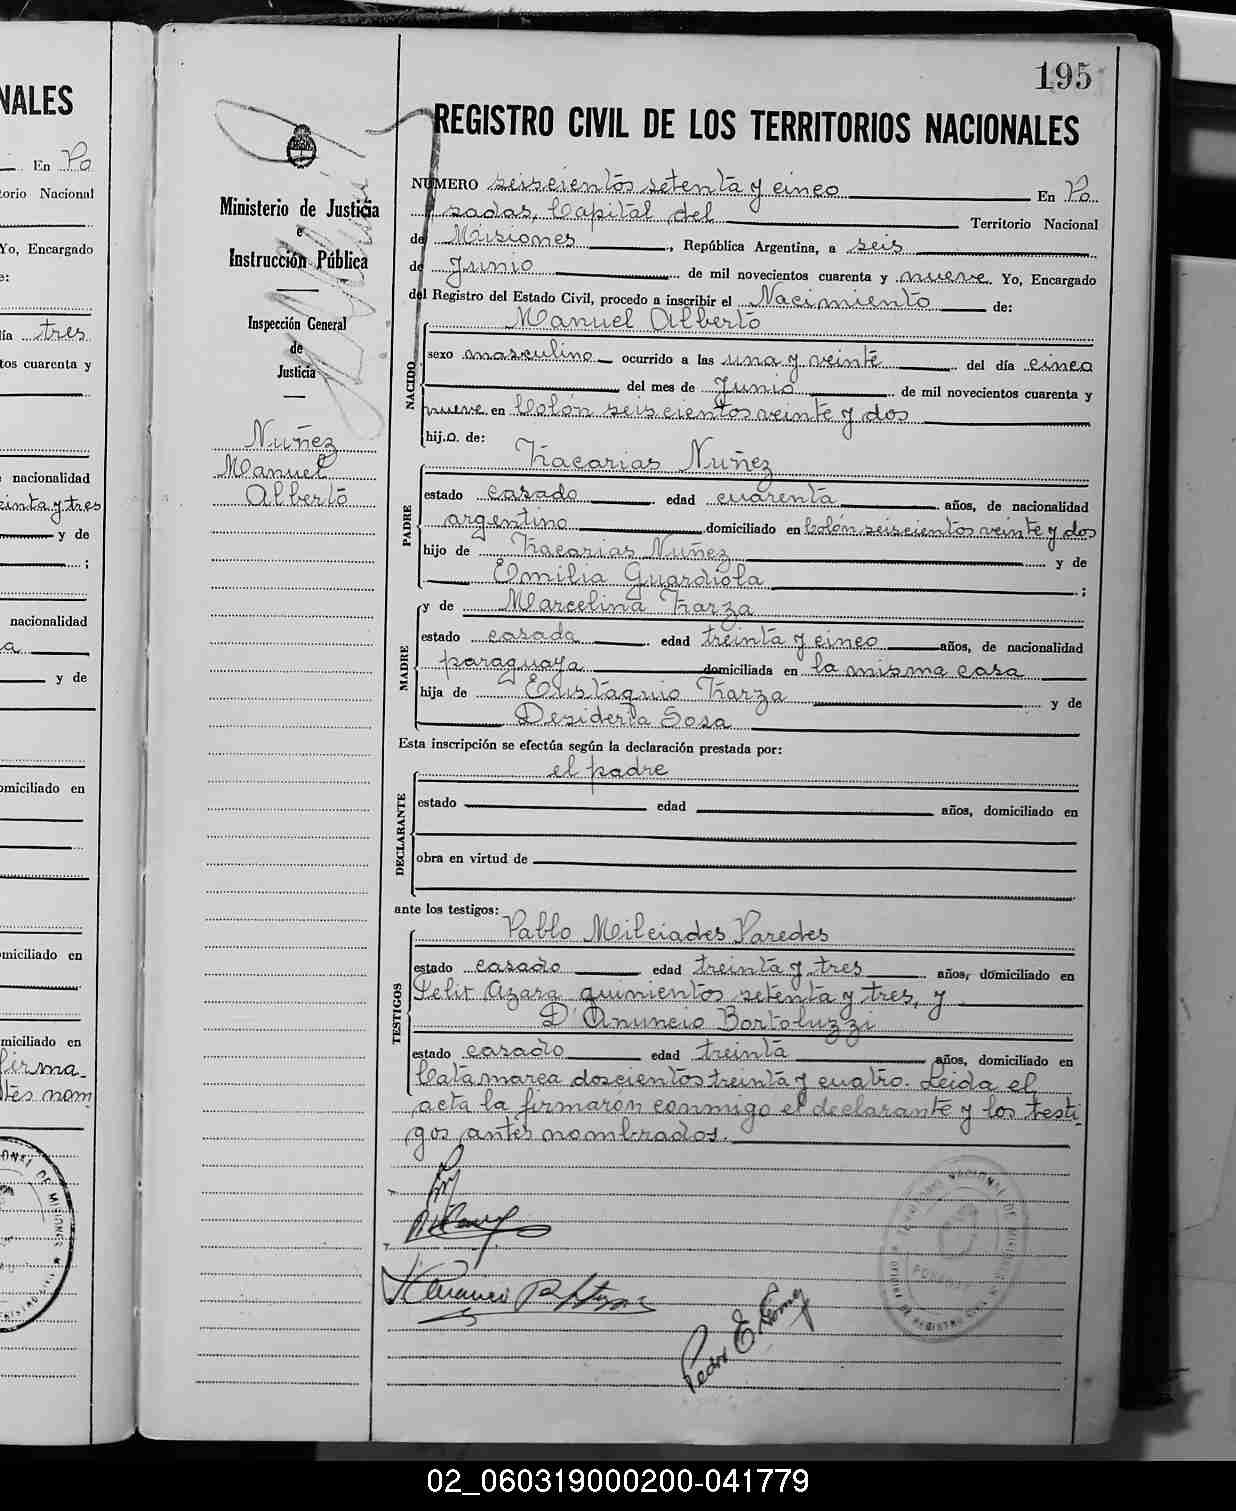 NALES
En Po
torio Nacional
Yo, Encargado
e:
día tres
tos cuarenta y
nacionalidad
einta y tres
y de
;
nacionalidad
a
y de
omiciliado en
miciliado en
miciliado en
firma-
tes nom
195
REGISTRO CIVIL DE LOS TERRITORIOS NACIONALES
Ministerio de Justicia
e
Instrucción Pública
Inspección General
de
Justicia
Nuñez
Manuel
Alberto
NÚMERO seiscientos setenta y cinco En Po
sadas, Capital del Territorio Nacional
de Misiones, República Argentina, a seis
de Junio de mil novecientos cuarenta y nueve Yo, Encargado
del Registro del Estado Civil, procedo a inscribir el Nacimiento de:
NACIDO
Manuel Alberto
sexo masculino ocurrido a las una y veinte del día cinco
del mes de Junio de mil novecientos cuarenta y
nueve en Colón seiscientos veinte y dos
hij.o. de:
PADRE
Zacarias Nuñez
estado casado edad cuarenta años, de nacionalidad
argentino domiciliado en Colón seiscientos veinte y dos
hijo de Zacarias Nuñez y de
Emilia Guardiola ;
MADRE
y de Marcelina Zarza
estado casada edad treinta y cinco años, de nacionalidad
paraguaya domiciliada en la misma casa
hija de Eustaquio Zarza y de
Desideria Sosa
Esta inscripción se efectúa según la declaración prestada por:
DECLARANTE
el padre
estado edad años, domiciliado en
obra en virtud de
ante los testigos:
TESTIGOS
Pablo Milciades Paredes
estado casado edad treinta y tres años, domiciliado en
Felix Azara quinientos setenta y tres, y
D'Anuncio Bortoluzzi
estado casado edad treinta años, domiciliado en
Catamarca doscientos treinta y cuatro. Leida el
acta la firmaron conmigo el declarante y los testi-
gos antes nombrados.
Pedro E. Gomez
02_060319000200-041779